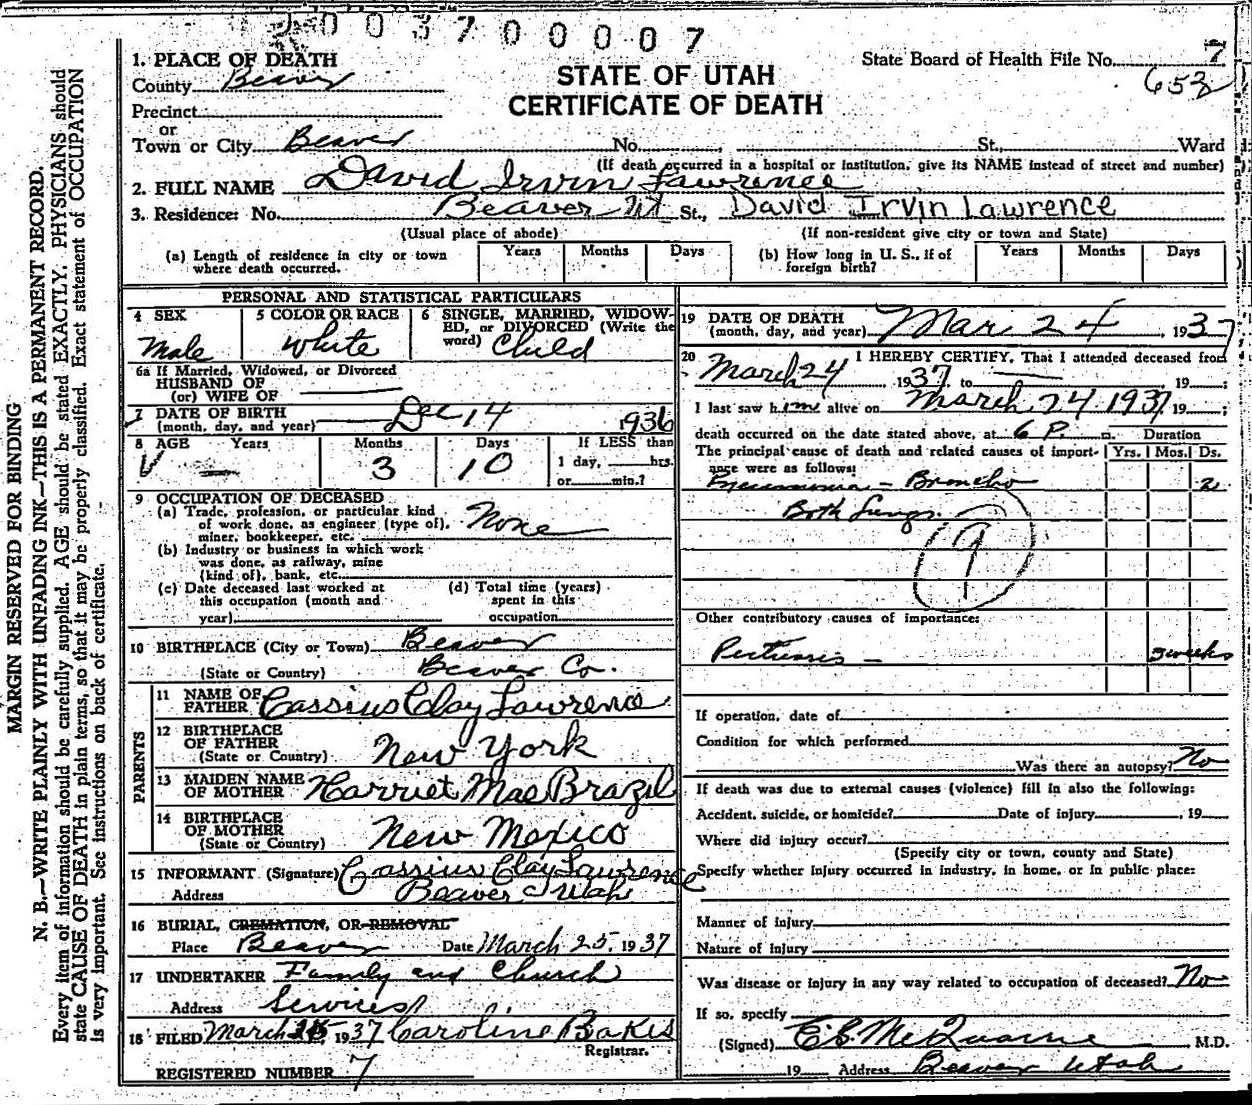 0 0 3 7 0 0 0 0 7
1. PLACE OF DEATH
County Beaver
STATE OF UTAH
CERTIFICATE OF DEATH
State Board of Health File No. 7
652
Precinct
or
Town or City Beaver No. St., Ward
(If death occurred in a hospital or institution, give its NAME instead of street and number)
2. FULL NAME David Irvin Lawrence
3. Residence: No. Beaver Ut St., David Irvin Lawrence
(Usual place of abode) (If non-resident give city or town and State)
(a) Length of residence in city or town where death occurred. Years Months Days (b) How long in U. S., if of foreign birth? Years Months Days
PERSONAL AND STATISTICAL PARTICULARS
4 SEX Male
5 COLOR OR RACE White
6 SINGLE, MARRIED, WIDOW-
ED, or DIVORCED (Write the
word) Child
6a If Married, Widowed, or Divorced
HUSBAND OF
(or) WIFE OF
7 DATE OF BIRTH
(month, day, and year) Dec 14 1936
8 AGE Years Months Days If LESS than
3 10 1 day, hrs.
or min.?
9 OCCUPATION OF DECEASED
(a) Trade, profession, or particular kind
of work done, as engineer (type of),
miner, bookkeeper, etc. None
(b) Industry or business in which work
was done, as railway, mine
(kind of), bank, etc.
(c) Date deceased last worked at
this occupation (month and
year)
(d) Total time (years)
spent in this
occupation
10 BIRTHPLACE (City or Town) Beaver
(State or Country) Beaver Co.
PARENTS
11 NAME OF
FATHER Cassius Clay Lawrence
12 BIRTHPLACE
OF FATHER
(State or Country) New York
13 MAIDEN NAME
OF MOTHER Harriet Mae Brazil
14 BIRTHPLACE
OF MOTHER
(State or Country) New Mexico
15 INFORMANT (Signature) Cassius Clay Lawrence
Address Beaver Utah
16 BURIAL, CREMATION, OR REMOVAL
Place Beaver Date March 25, 1937
17 UNDERTAKER Family and Church
Address Services
18 FILED March 1937 Caroline Bakes
Registrar.
REGISTERED NUMBER 7
19 DATE OF DEATH
(month, day, and year) Mar 24, 1937
20 I HEREBY CERTIFY, That I attended deceased from
March 24 1937 to 19 ;
I last saw him alive on March 24 1937 19 ;
death occurred on the date stated above, at 6 P. m. Duration
The principal cause of death and related causes of import-
ance were as follows: Yrs. Mos. Ds.
Pneumonia - Broncho 2
Both Lungs.
9
Other contributory causes of importance:
Pertussis - 3 weeks
If operation, date of
Condition for which performed
Was there an autopsy? No
If death was due to external causes (violence) fill in also the following:
Accident, suicide, or homicide? Date of injury , 19
Where did injury occur?
(Specify city or town, county and State)
Specify whether injury occurred in industry, in home, or in public place:
Manner of injury
Nature of injury
Was disease or injury in any way related to occupation of deceased? No
If so, specify
(Signed) M.D.
19 Address Beaver Utah
MARGIN RESERVED FOR BINDING
N. B.—WRITE PLAINLY WITH UNFADING INK—THIS IS A PERMANENT RECORD.
Every item of information should be carefully supplied. AGE should be stated EXACTLY. PHYSICIANS should
state CAUSE OF DEATH in plain terms, so that it may be properly classified. Exact statement of OCCUPATION
is very important. See instructions on back of certificate.